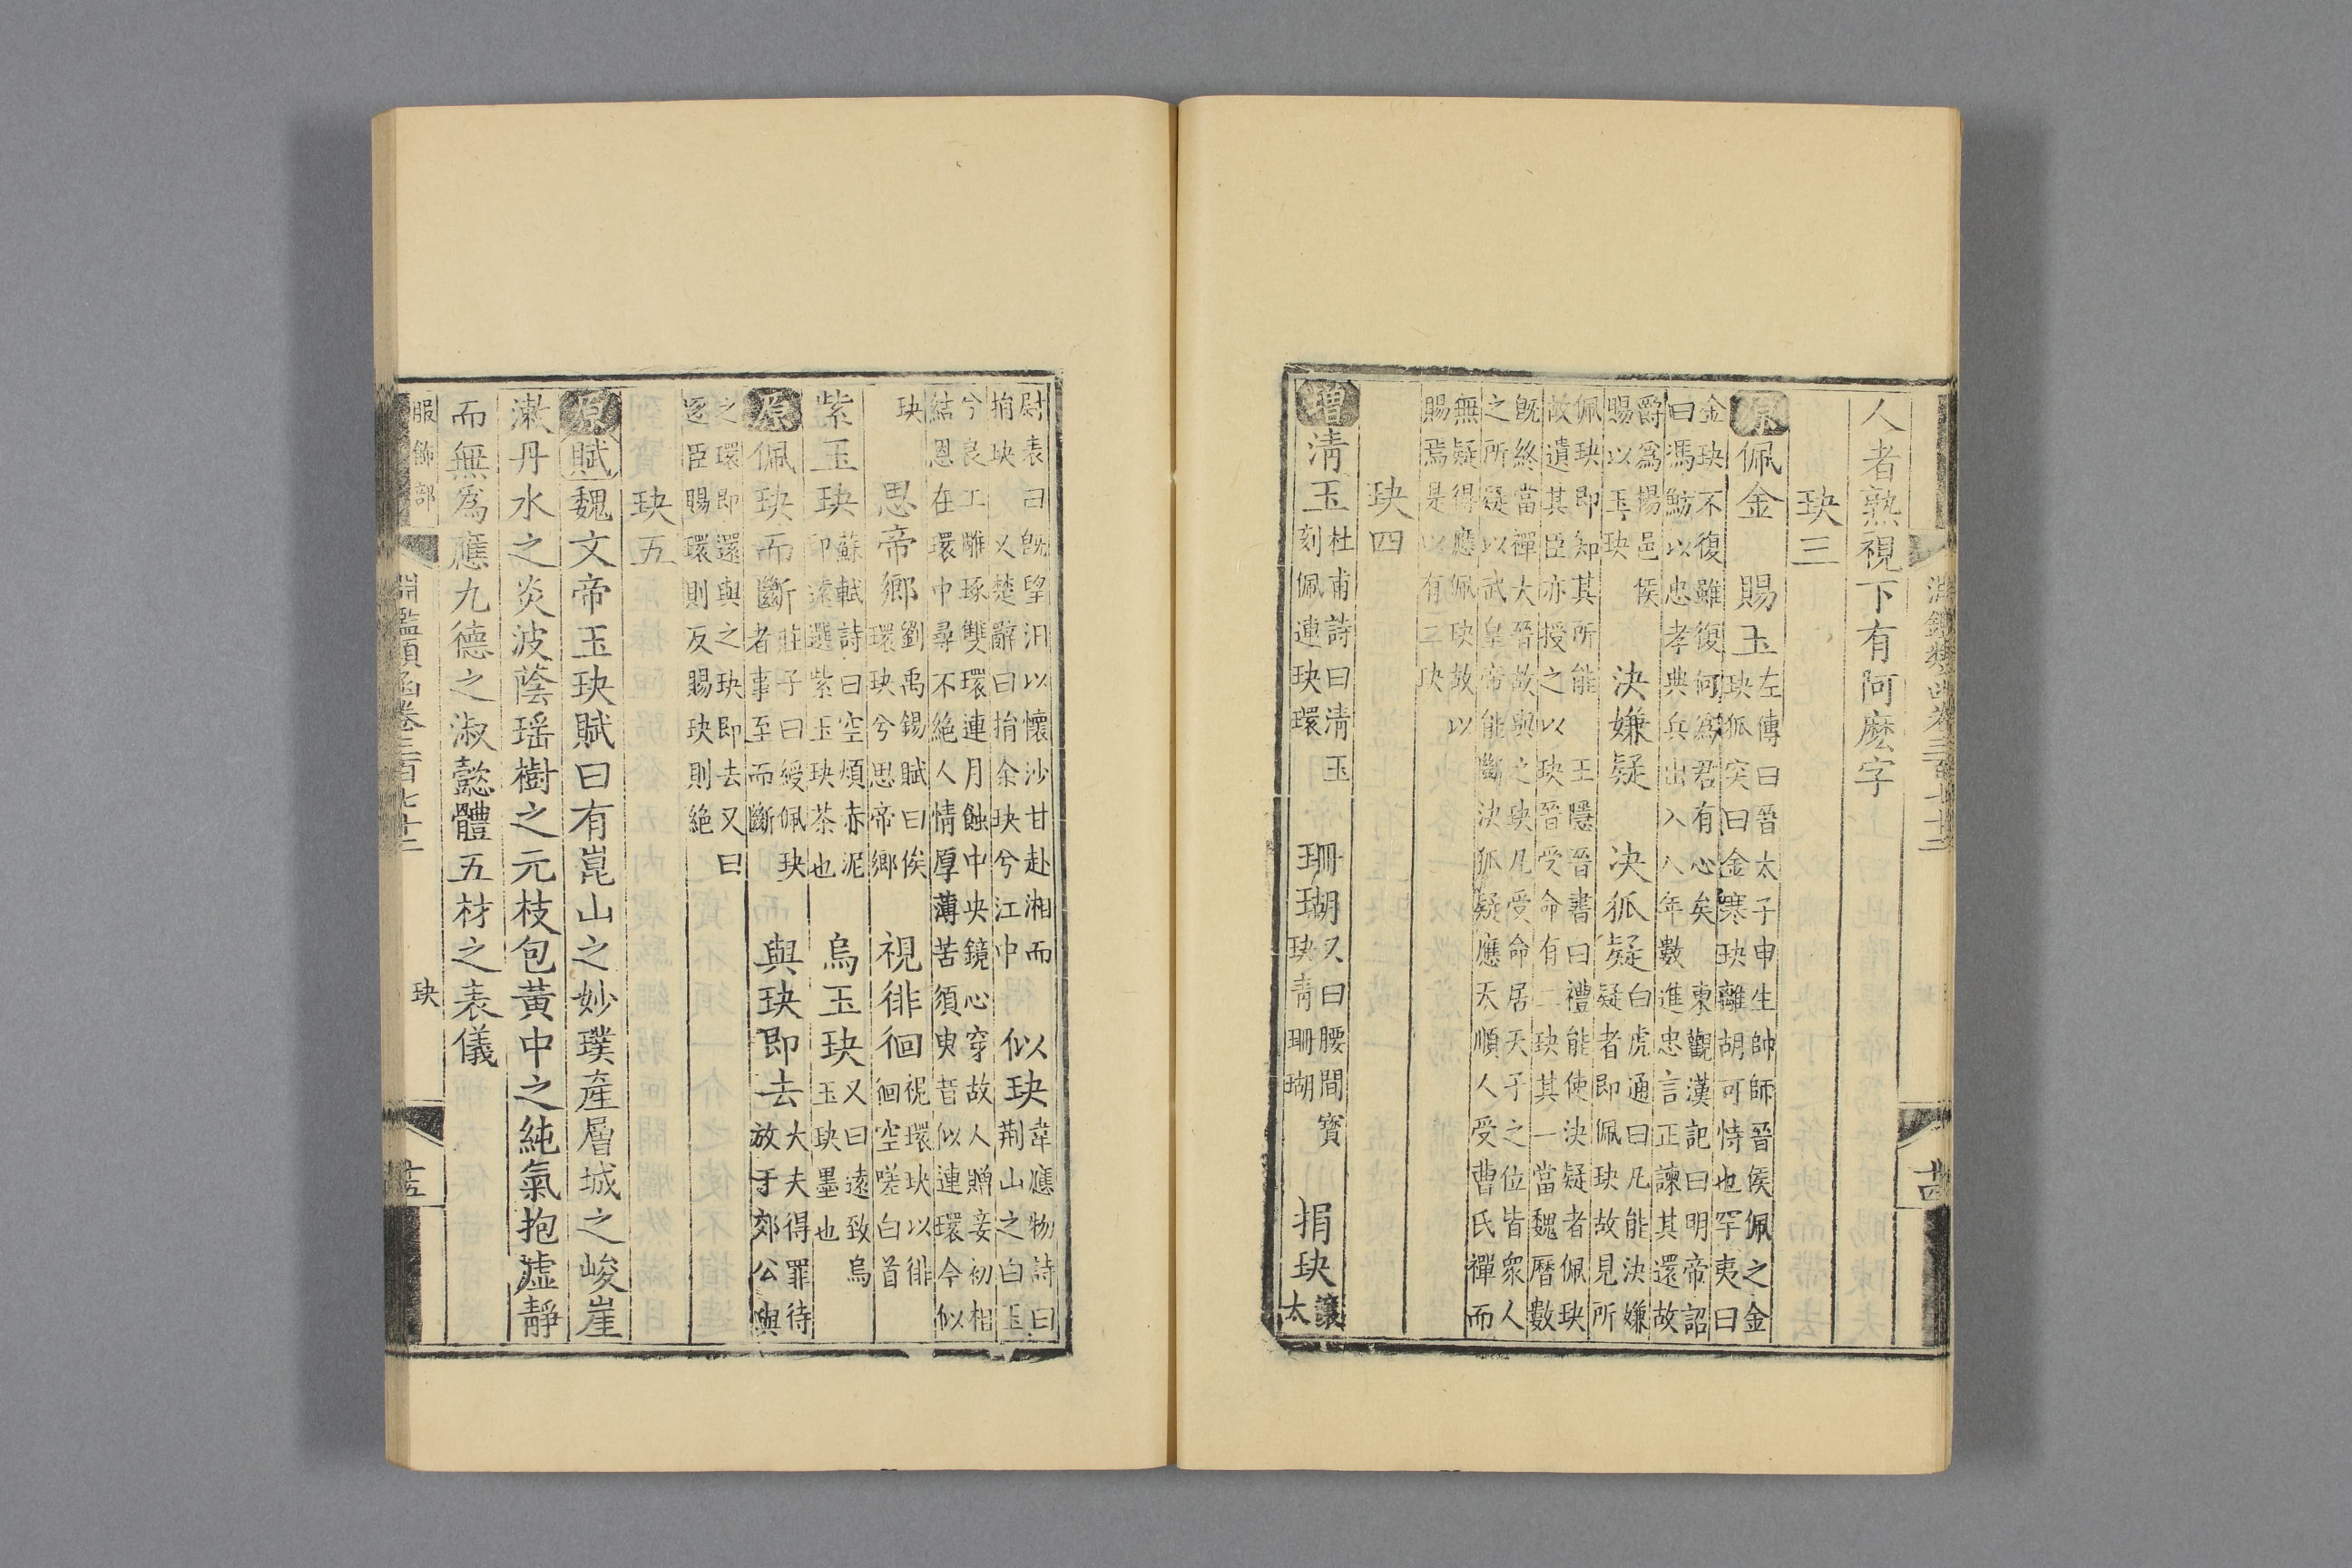 淵鑑類函卷三百七十二 廿四
人者熟視下有阿麽字
玦三
原佩金 賜玉 左傳曰晉太子申生帥師晉侯佩之金
玦狐突曰金寒玦離胡可恃也罕夷曰
金玦不復雖復何爲君有心矣 東觀漢記曰明帝詔
曰馮魴以忠孝典兵出入八年數進忠言正諫其還故
爵爲揚邑侯
賜以玉玦 決嫌疑 決狐疑 白虎通曰凡能決嫌
疑者即佩玦故見所
佩玦即知其所能 王隱晉書曰禮能使決疑者佩玦
故遺其臣亦授之以玦晉受命有二玦其一當魏曆數
旣終當禪大晉故與之玦凡受命居天子之位皆衆人
之所疑以武皇帝能斷決狐疑應天順人受曹氏禪而
無疑得應佩玦故以
賜焉是以有二玦
玦四
增清玉 杜甫詩曰清玉
刻佩連玦環 珊瑚 又曰腰間寶
玦青珊瑚 捐玦 讓
太
尉表曰旣望汨以懷沙甘赴湘而
捐玦 又楚辭曰捐余玦兮江中 似玦 韋應物詩曰
荆山之白玉
兮良工雕琢雙環連月蝕中央鏡心穿故人贈妾初相
結恩在環中尋不絶人情厚薄苦須臾昔似連環今似
玦 思帝鄉 劉禹錫賦曰俟
環玦兮思帝鄉 視徘徊 視環玦以徘
徊空嗟白首
紫玉玦 蘇軾詩曰空煩赤泥
印遠選紫玉玦茶也 烏玉玦 又曰遠致烏
玉玦墨也
原佩玦而斷 莊子曰綬佩玦
者事至而斷 與玦即去 大夫得罪待
放于郊公與
之環即還與之玦即去又曰
逐臣賜環則反賜玦則絶
玦五
原賦魏文帝玉玦賦曰有崑山之妙璞產層城之峻崖
漱丹水之炎波蔭瑶樹之元枝包黃中之純氣抱虛靜
而無爲應九德之淑懿體五材之表儀
服飾部 淵鑑類函卷三百七十二 玦 廿五